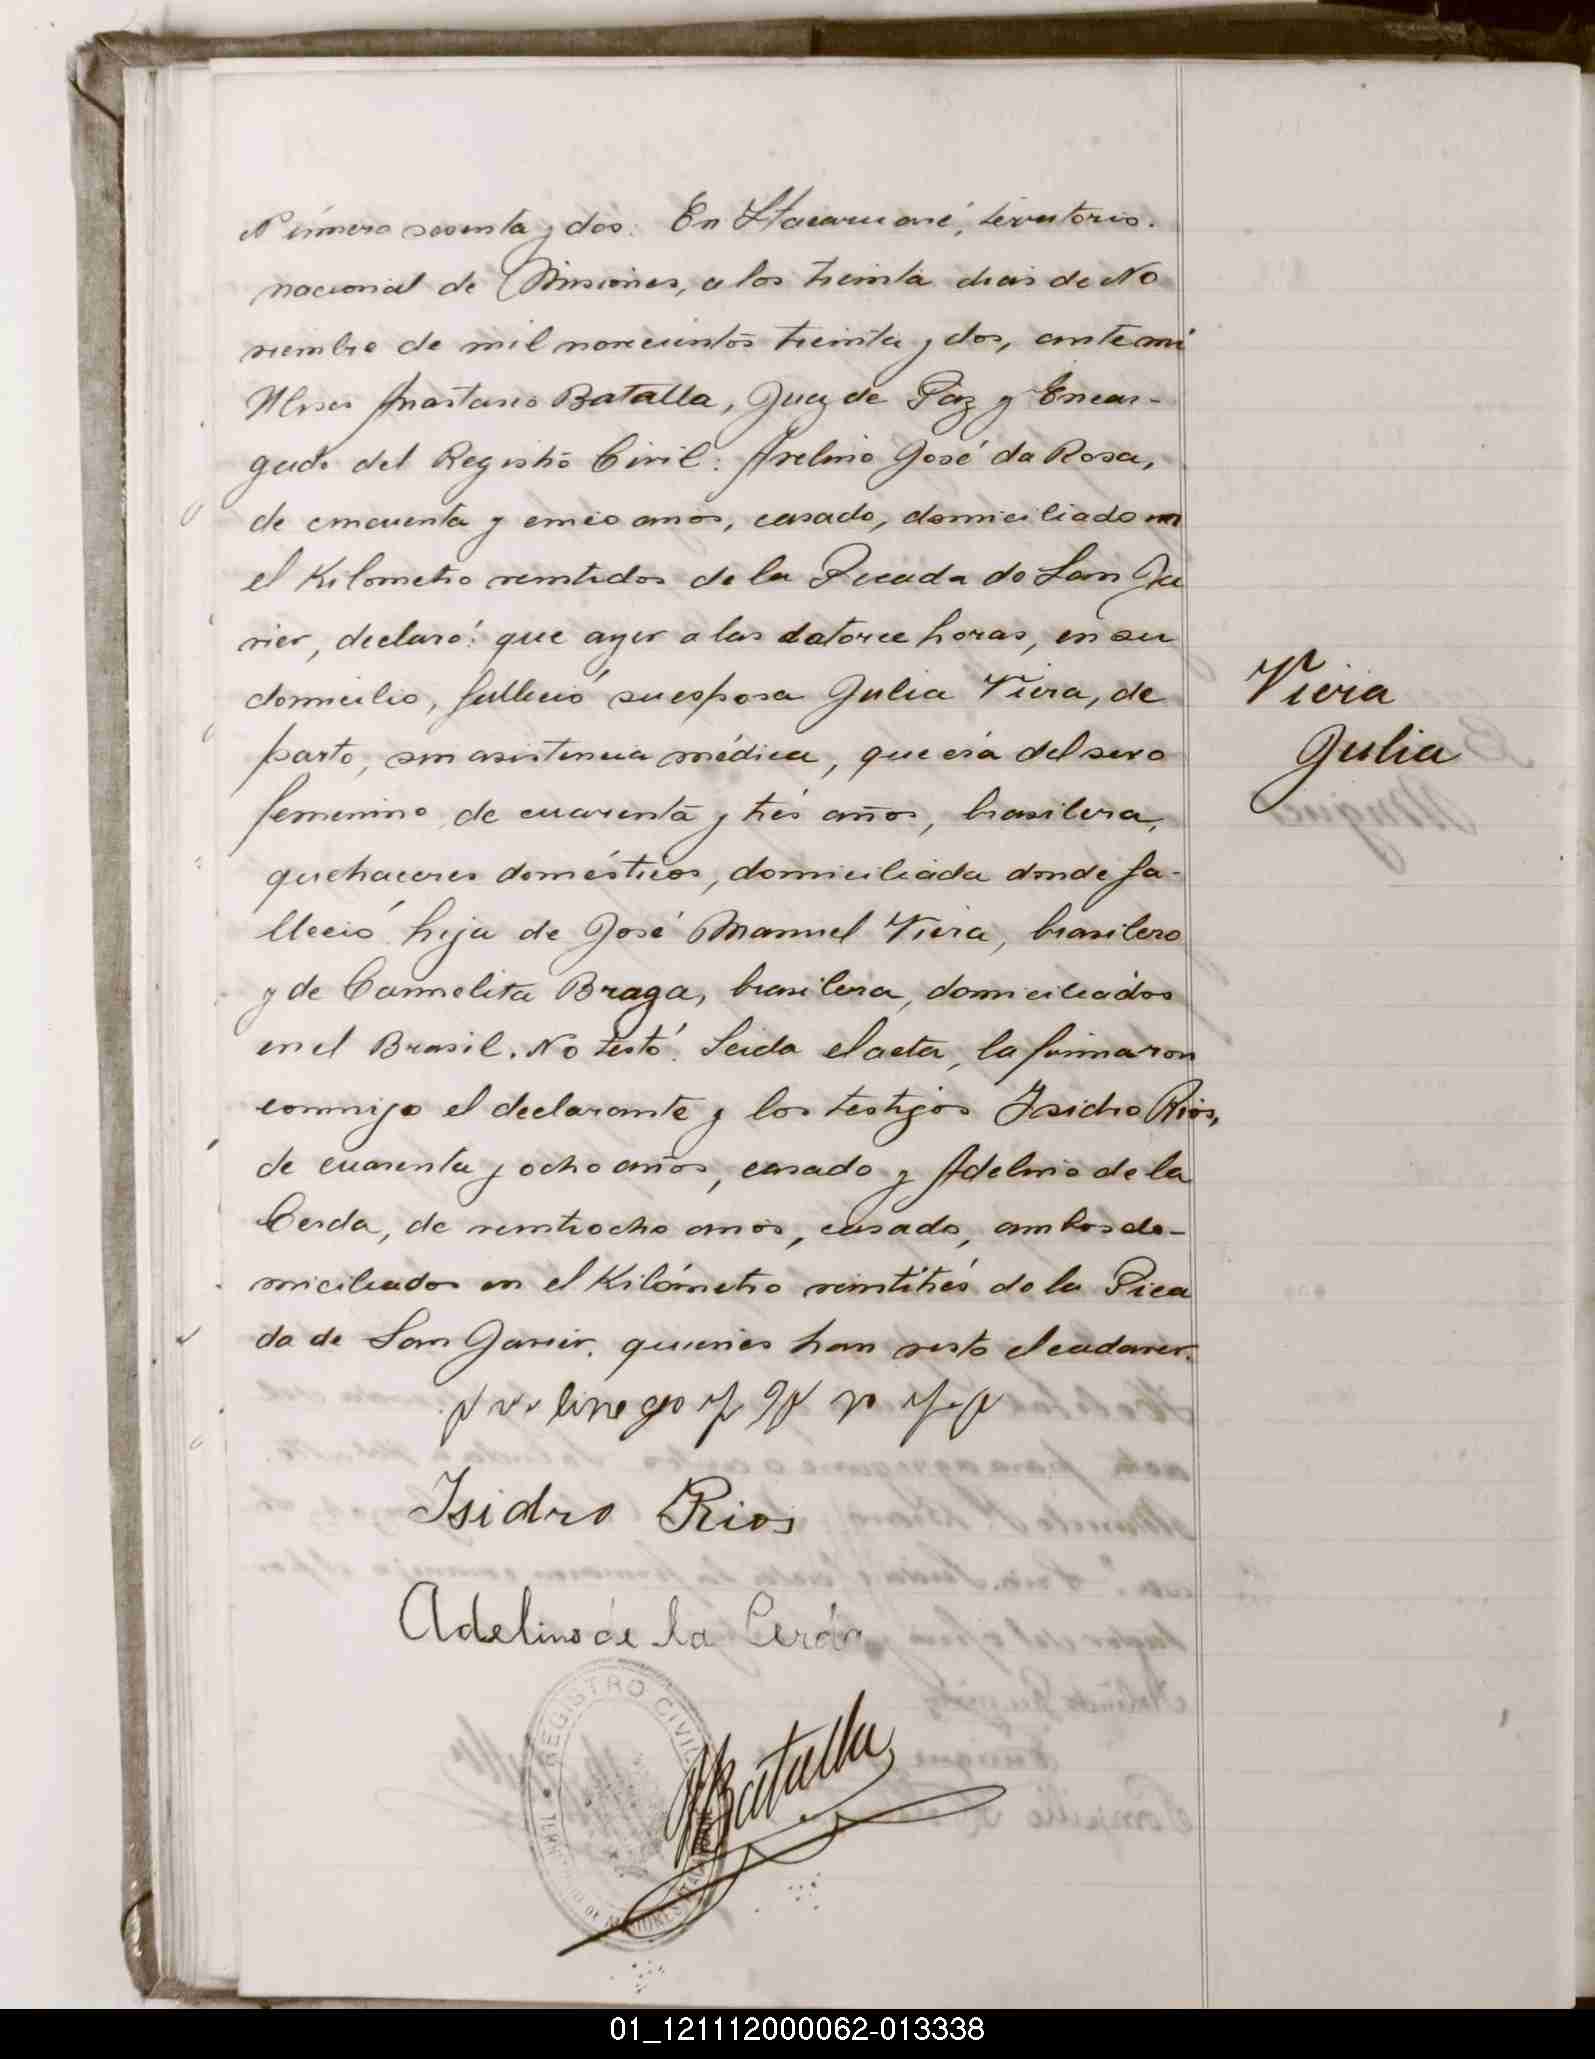 Número sesenta y dos: En Itacaruaré, territorio
nacional de Misiones, a los treinta dias de No
viembre de mil novecientos treinta y dos, ante mi
Ulises Anastasio Batalla, Juez de Paz y Encar-
gado del Registro Civil: Avelino José da Rosa,
de cincuenta y cinco años, casado, domiciliado en
el Kilometro veintidos de la Picada de San Ja
vier, declaró: que ayer a las catorce horas, en su
domicilio, falleció su esposa Julia Viera, de
parto, sin asistencia médica, que era del sexo
femenino, de cuarenta y trés años, brasilera,
quehaceres domésticos, domiciliada donde fa-
lleció, hija de José Manuel Viera, brasilero
y de Carmelita Braga, brasilera, domiciliados
en el Brasil. No testó. Leida el acta, la firmaron
conmigo el declarante y los testigos Isidro Rios,
de cuarenta y ocho años, casado y Adelino de la
Cerda, de veintiocho años, casado, ambos do-
miciliados en el Kilómetro veintitrés de la Pica
da de San Javier, quienes han visto el cadaver.
Isidro Rios
Adelino de la Cerda
Batalla
REGISTRO CIVIL
Viera
Julia
01_121112000062-013338